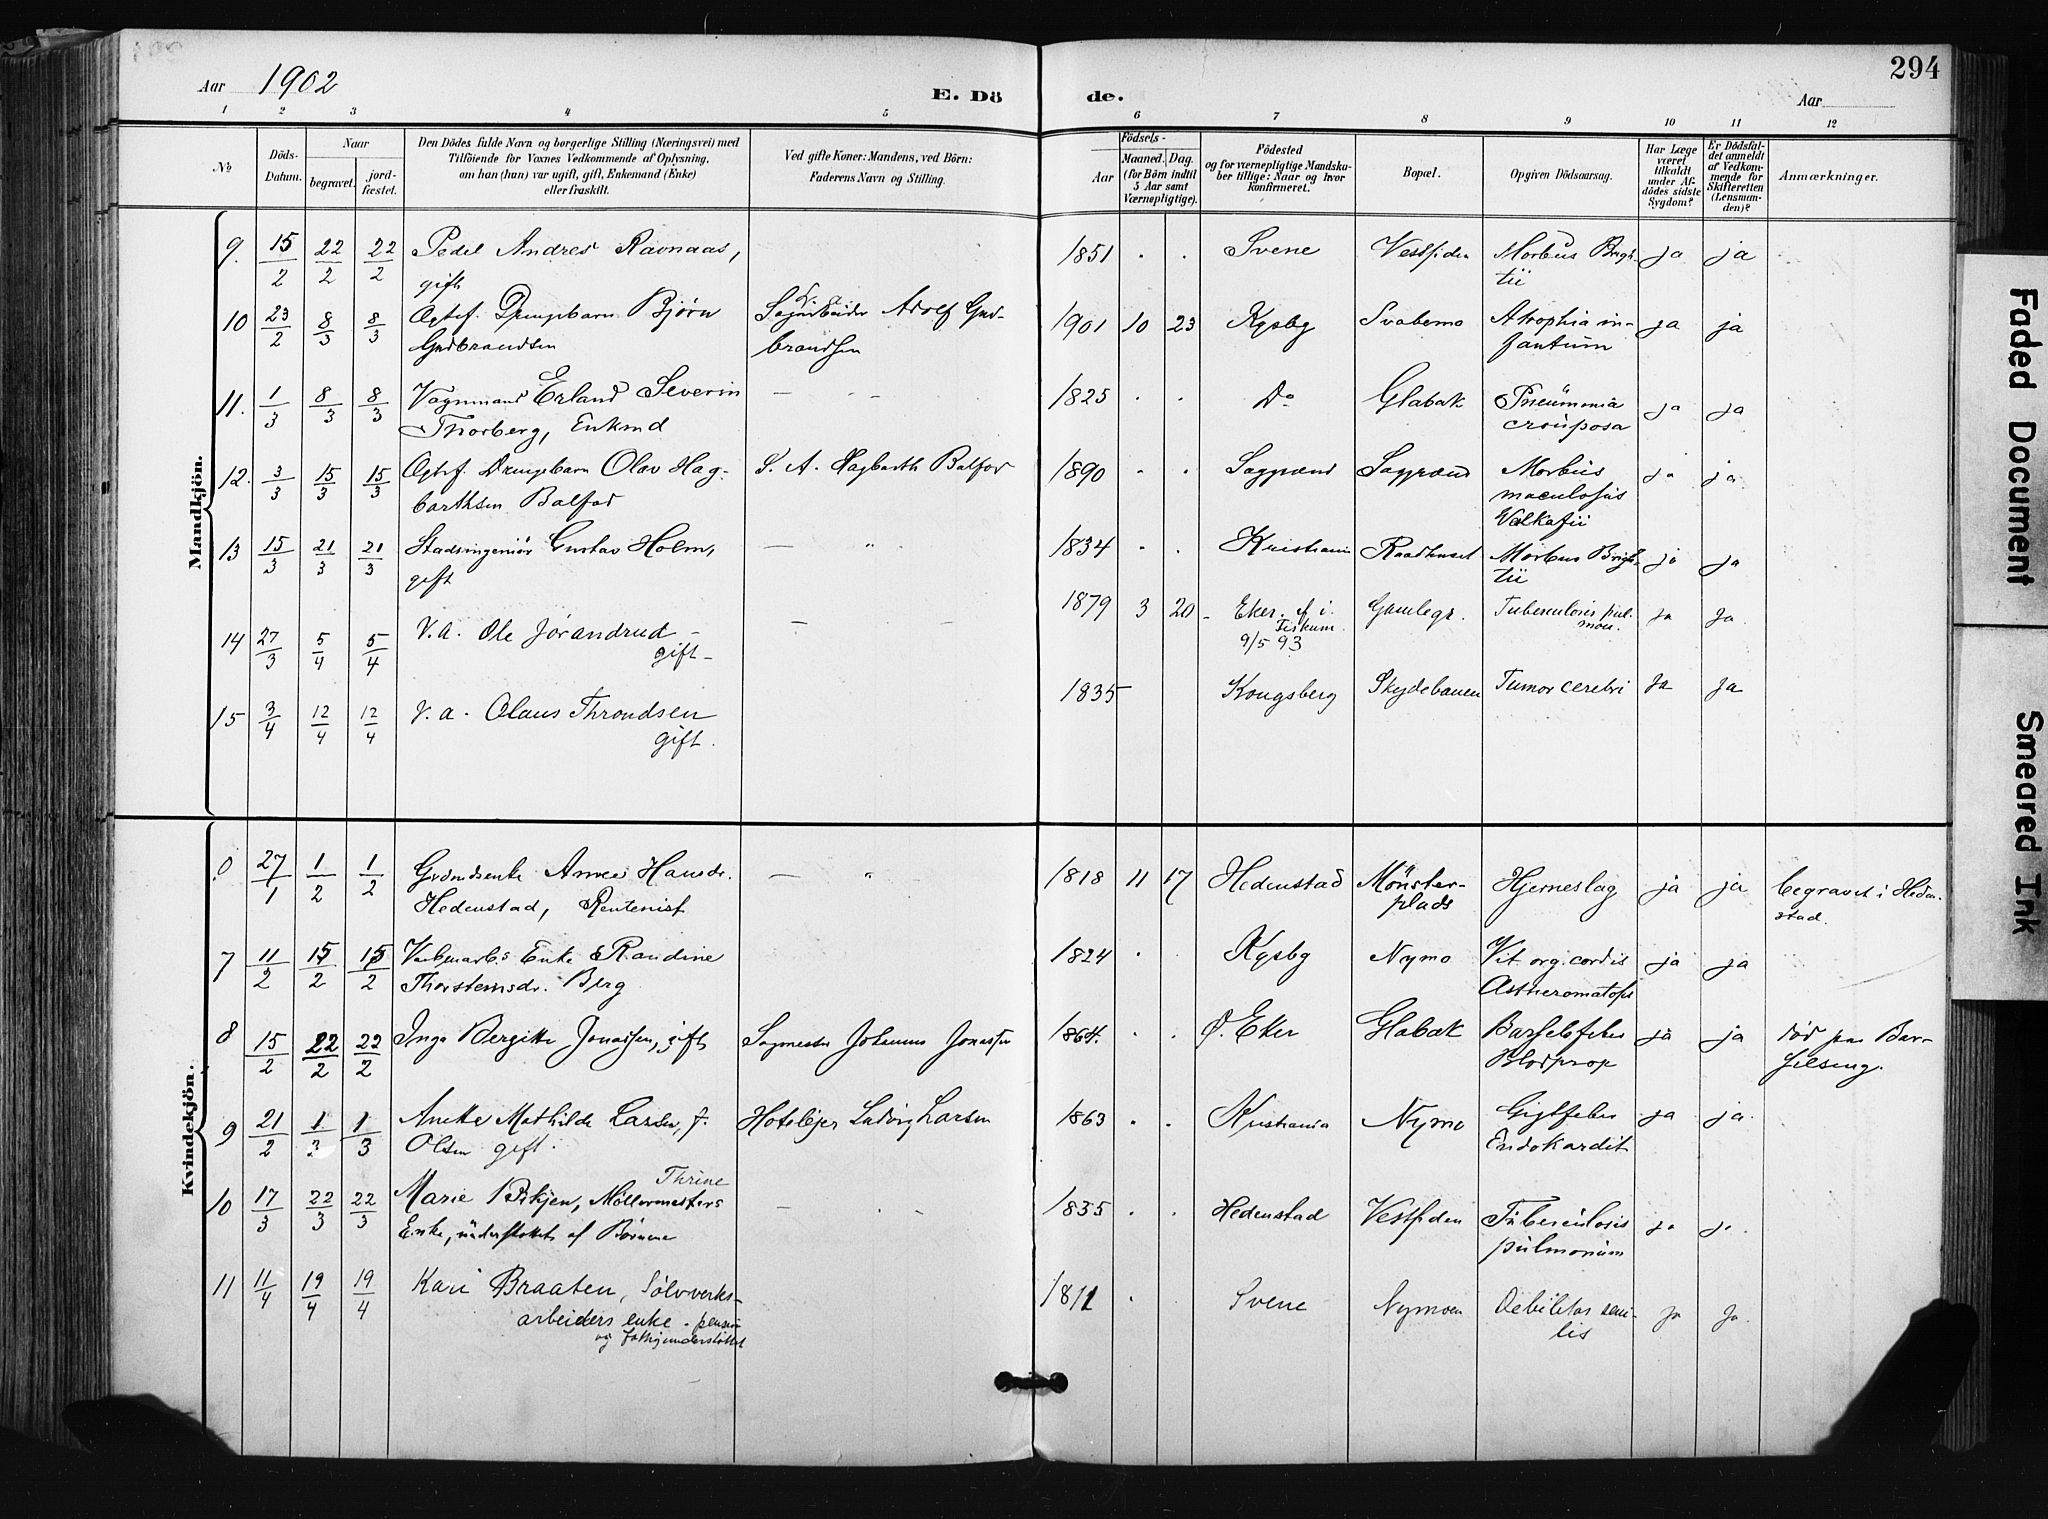 294
Aar 1902
E. Dö
de.
Aar
1 2 3 4 5 6 7 8 9 10 11 12
No
Döds-
Datum.
Naar
begravet.
jord-
fæstet.
Den Dödes fulde Navn og borgerlige Stilling (Næringsvei) med
Tilföiende for Voxnes Vedkommende af Oplysning,
om han (hun) var ugift, gift, Enkemand (Enke)
eller fraskilt.
Ved gifte Koner: Mandens, ved Börn:
Faderens Navn og Stilling.
Födsels-
Aar
Maaned. Dag.
(for Börn indtil
5 Aar samt
Værnepligtige).
Födested
og for værnepligtige Mandska-
ber tillige: Naar og hvor
konfirmeret.
Bopæl.
Opgiven Dödsaarsag.
Har Læge
været
tilkaldt
under Af-
dödes sidste
Sygdom?
Er Dödsfal-
det anmeldt
af Vedkom-
mende for
Skifteretten
(Lensman-
den)?
Anmærkninger.
Mandkjön.
9. 15/2 22/2 22/2 Pedel Andres Ravnaas, 1851 Svene Vestsiden Morbus Brigh- ja ja
gift tii
10 23/2 8/3 8/3 Ogtef. Drengebarn Bjørn Adolf Gud- 1901 10 23 Kgsbg Svabemo Atrophia in- ja ja
Gudbrandsen brandsen fantum
11. 1/3 8/3 8/3 Vognmand Erland Severin — 1825 Do Glabak Pneumonia ja ja
Thorberg, Enkmd crouposa
12. 3/3 15/3 15/3 Ogtef. Drengebarn Olav Hag- S. A. Hagbarth Balfod 1890 Saggrænd Saggrænd Morbus ja ja
barthsen Balfod maculosus
13 15/3 21/3 21/3 Stadsingeniør Gustav Holm, — " 1834 Kristiania Raadhuset Morbus Brigh- ja ja
gift tii
14 27/3 5/4 5/4 V.a. Ole Jørandrud — — 1879 3 20 Eker. cf i. Gamlegr. Tuberculosis pul- ja Ja
gift Fiskum mon.
9/5 93
15 3/4 12/4 12/4 V.a. Olaus Throndsen 1835 Kongsberg Skydebanen Tumor cerebri Ja Ja
gift.
Kvindekjön.
27/1 1/2 1/2 Hansdr. — " 1818 11 17 Hedenstad Mönster- Hjerneslag ja ja begravet i Heden-
Hedenstad, Rentenist plads stad.
7 11/2 15/2 15/2 Enke Randine 1824 Kgsbg Nymo Vit. org. cordis ja ja
Thorstensdr. Berg
8 15/2 22/2 22/2 Inga Bergitte Jonassen, gift Sagmester Johannes Jonassen 1864. Ø. Eker Glabak Barselfeber ja ja død paa Bar-
Blodprop selseng.
9 21/2 1/3 1/3 Mathilde Larsen, f. Ludvig Larsen 1863 Kristiania Nymo Gigtfeber ja ja.
Olsen gift. Endokardit
Thrine
10 17/3 22/3 22/3 Marie Møllermesters — 1835 Hedenstad Vestsiden Tuberculosis ja ja
Enke, understøttet af Børnene pulmonum
11 11/4 19/4 19/4 Kari Braaten, Sølvverks- 1811 Svene Nymoen Debilitas seni- ja Ja.
arbeiders enke. pension lis
og fattigunderstøttet
Faded Document
Smeared Ink